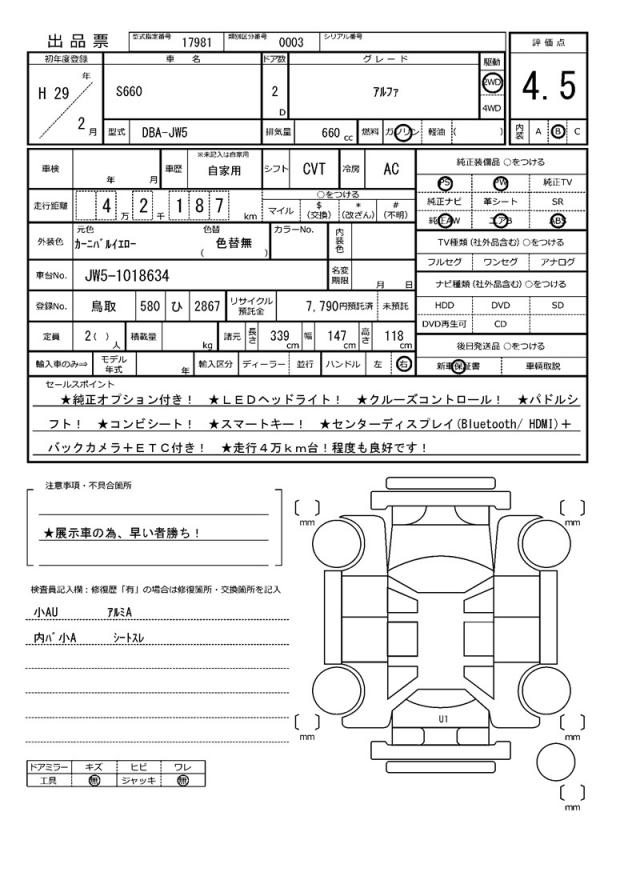 出品票 型式指定番号 17981 類別区分番号 0003 シリアル番号
評価点
4.5
内装 A B C
初年度登録 車名 ドア数 グレード 駆動
H 29 年 2 月
S660 2 D アルファ 2WD 4WD
型式 DBA-JW5 排気量 660 cc 燃料 ガソリン 軽油 ( )
車検 年 月 車歴 ※未記入は自家用 自家用 シフト CVT 冷房 AC
走行距離 4 万 2 千 1 8 7 km
○をつける
マイル $ (交換) * (改ざん) # (不明)
外装色 元色 カーニバルイエロー 色替 ( 色替無 ) カラーNo. 内装色
車台No. JW5-1018634 名変期限 月 日
登録No. 鳥取 580 ひ 2867 リサイクル預託金 7,790円預託済 未預託
定員 2( ) 人 積載量 kg 諸元 長さ 339 cm 幅 147 cm 高さ 118 cm
輸入車のみ⇒ モデル年式 年 輸入区分 ディーラー 並行 ハンドル 左 右
純正装備品 ○をつける
PS PW 純正TV
純正ナビ 革シート SR
純正AW エアB ABS
TV種類 (社外品含む) ○をつける
フルセグ ワンセグ アナログ
ナビ種類 (社外品含む) ○をつける
HDD DVD SD
DVD再生可 CD
後日発送品 ○をつける
新車保証書 車輌取説
セールスポイント
★純正オプション付き! ★LEDヘッドライト! ★クルーズコントロール! ★パドルシ
フト! ★コンビシート! ★スマートキー! ★センターディスプレイ(Bluetooth/ HDMI)+
バックカメラ+ETC付き! ★走行4万km台!程度も良好です!
注意事項・不具合箇所
★展示車の為、早い者勝ち!
検査員記入欄:修復歴「有」の場合は修復箇所・交換箇所を記入
小AU アルミA
内バ小A シートスレ
ドアミラー キズ ヒビ ワレ
工具 無 ジャッキ 無
[ ] mm
[ ] mm
U1
[ ] mm
[ ] mm
[ ] mm